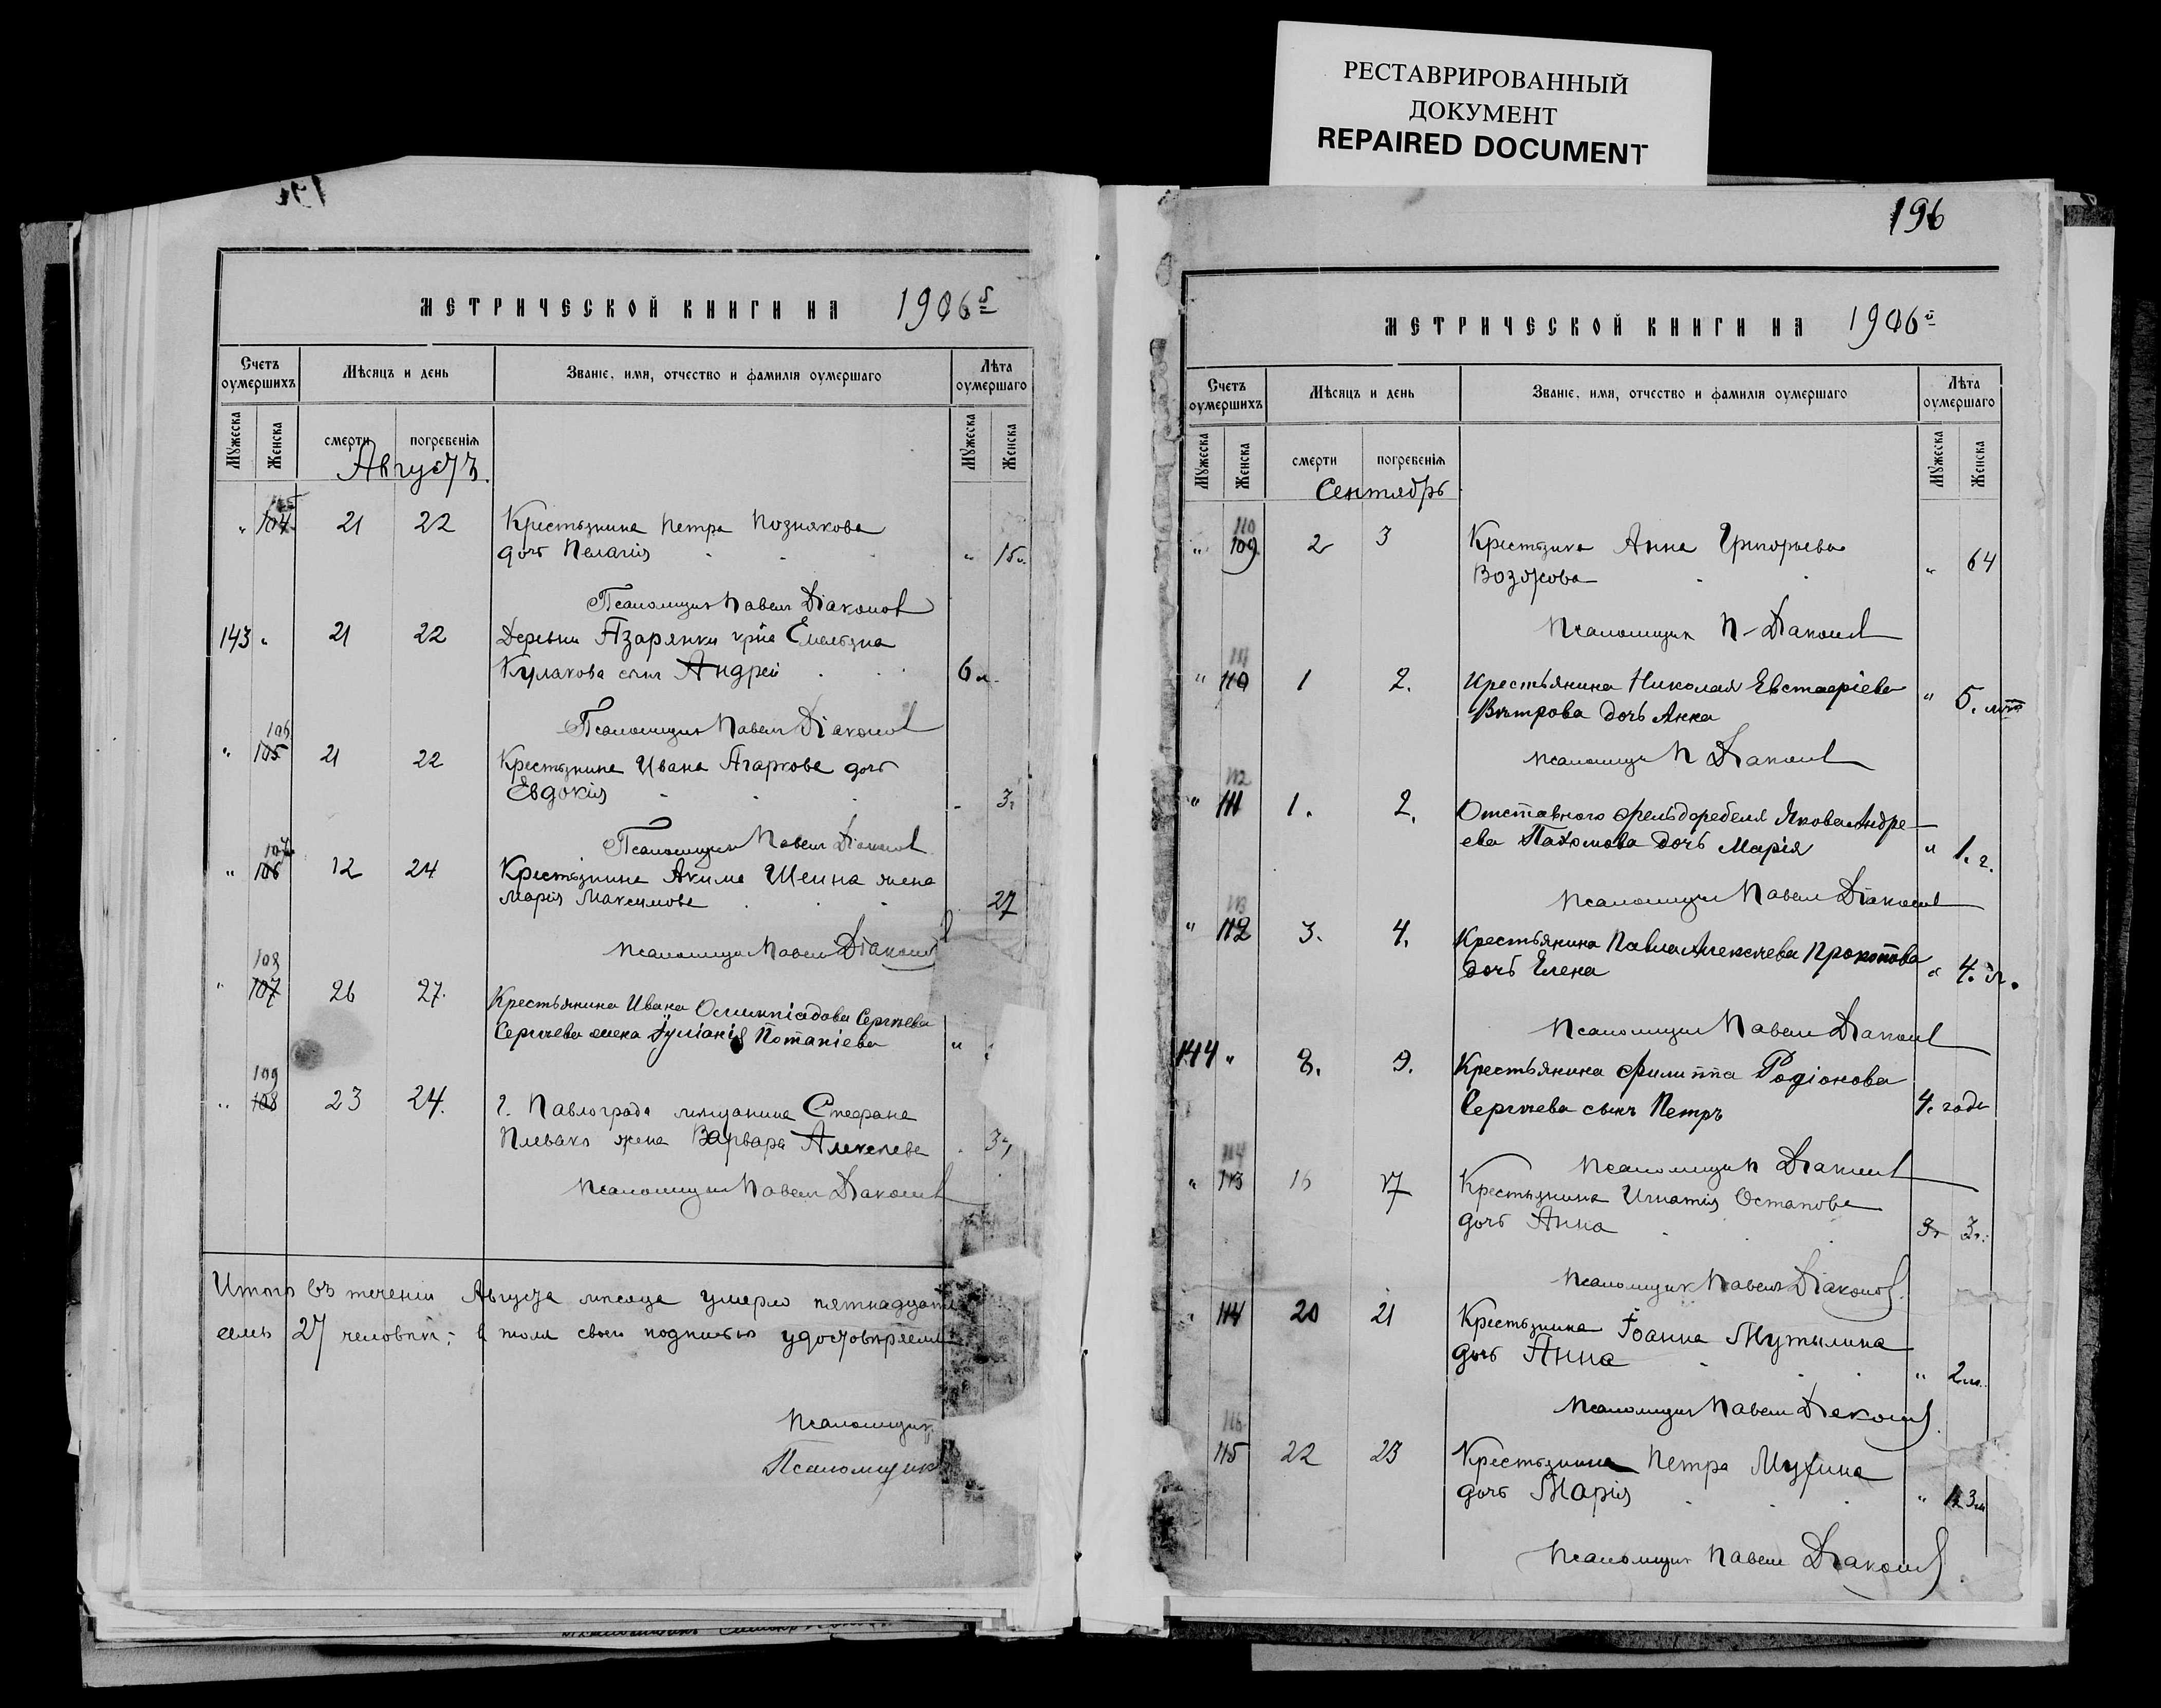 РЕСТАВРИРОВАННЫЙ
ДОКУМЕНТ
REPAIRED DOCUMENT
МЕТРИЧЕСКОЙ КНИГИ НА 1906й
Счетъ оумершихъ
Мѣсяцъ и день
Званіе, имя, отчество и фамилія оумершаго
Лѣта оумершаго
Мужеска
Женска
смерти
погребенія
Мужеска
Женска
Августъ.
" 104 21 22 Крестьянина Петра Познякова
дочь Пелагія " 1
Псаломщикъ Павелъ Діаконов
143 " 21 22 Деревни Азарянки Емельяна
Кулакова сынъ Андрей 6 м.
Псаломщикъ Павелъ Діаконов
106
" 105 21 22 Крестьянина Ивана Агаркова дочь
Евдокія - 3
Псаломщикъ Павелъ Діаконов
107
" 106 12 24 Крестьянина Акима Шеина жена
Марія Максимова 27
Псаломщикъ Павелъ Діаконов
108
" 107 26 27. Крестьянина Ивана Олимпіадова Сергѣева
Сергѣева жена Іуліанія Потапіева "
109
" 108 23 24. г. Павлограда мѣщанина Стефана
жена Варвара Алексѣева
Псаломщикъ Павелъ Діаконов
Итого въ теченіи Августа мѣсяца умерло
семь 27 человѣкъ; в томъ свою подписью удостовѣряемъ
Псаломщикъ
Псаломщикъ
196
МЕТРИЧЕСКОЙ КНИГИ НА 1906й
Счетъ оумершихъ
Мѣсяцъ и день
Званіе, имя, отчество и фамилія оумершаго
Лѣта оумершаго
Мужеска
Женска
смерти
погребенія
Мужеска
Женска
Сентябрь
110
" 109 2 3 Крестьянка Анна Григорьева
Возжова " 64
Псаломщикъ П. Діаконов
111
" 110 1 2. Крестьянина Николая Евстафіева
Вѣтрова дочь Анна " 5.
Псаломщикъ П Діаконов
112
" 111 1. 2. Отставного фельдфебеля Якова Андре-
ева Пахомова дочь Марія " 1. г.
Псаломщикъ Павелъ Діаконов
113
" 112 3. 4. Крестьянина Павла Алексѣева Прокопова
дочь Елена " 4.
Псаломщикъ Павелъ Діаконов
144 " 8. 9. Крестьянина Филиппа Родіонова
Сергѣева сынъ Петръ 4. года
Псаломщикъ П Діаконов
114
" 113 16 17 Крестьянина Игнатія Остапова
дочь Анна 3
Псаломщикъ Павелъ Діаконов
" 114 20 21 Крестьянина Іоанна Мутылина
дочь Анна " 2 м.
Псаломщикъ Павелъ Діаконов
116
115 22 23 Крестьянина Петра Мухина
дочь Марія " 3 м
Псаломщикъ Павелъ Діаконов